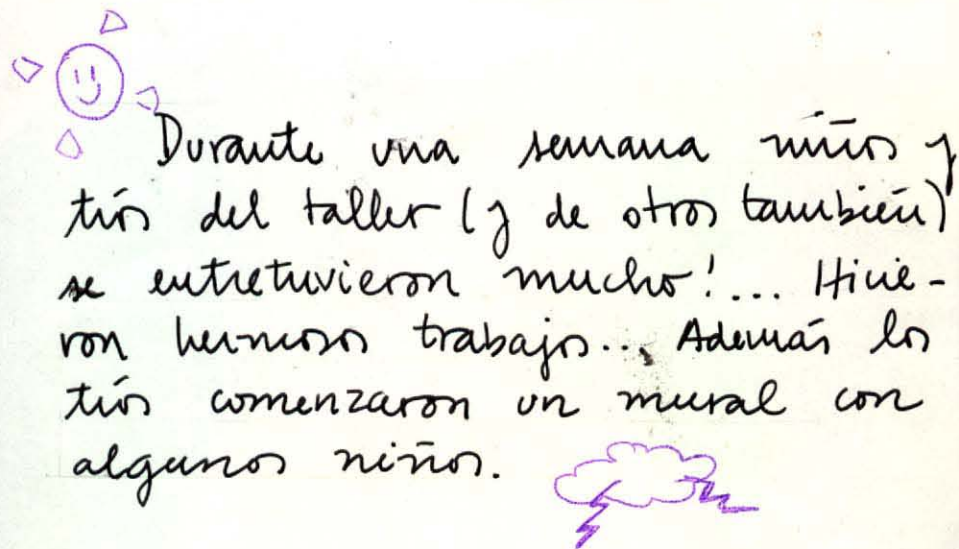 Durante una semana niños y
tíos del taller (y de otros también)
se entretuvieron mucho!... Hicie-
ron hermosos trabajos... Además los
tíos comenzaron un mural con
algunos niños.